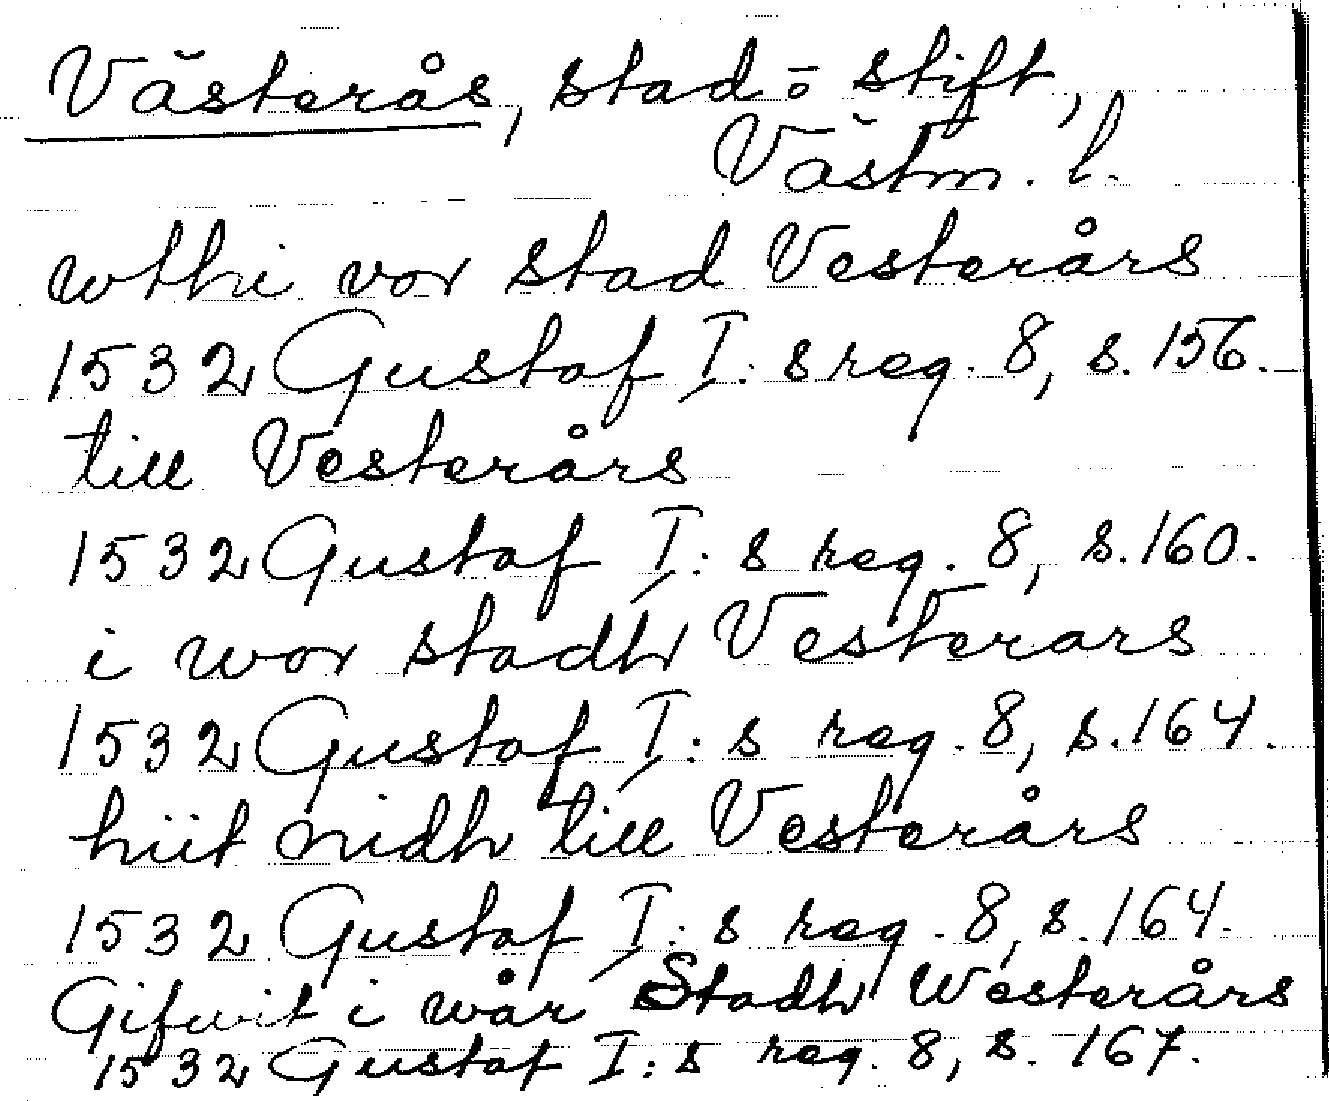 Västerås, stad o. stift,
Västm. l.
wthi vor stad Vesterårs
1532 Gustaf I:s reg. 8, s. 156.
till Vesterårs
1532 Gustaf I:s reg. 8, s. 160.
i wor stadh Vesterars
1532 Gustaf I:s reg. 8, s. 164.
hiit nidh till Vesterårs
1532 Gustaf I:s reg. 8, s. 164.
Gifwit i wår Stadh Westerårs
1532 Gustaf I:s reg. 8, s. 167.